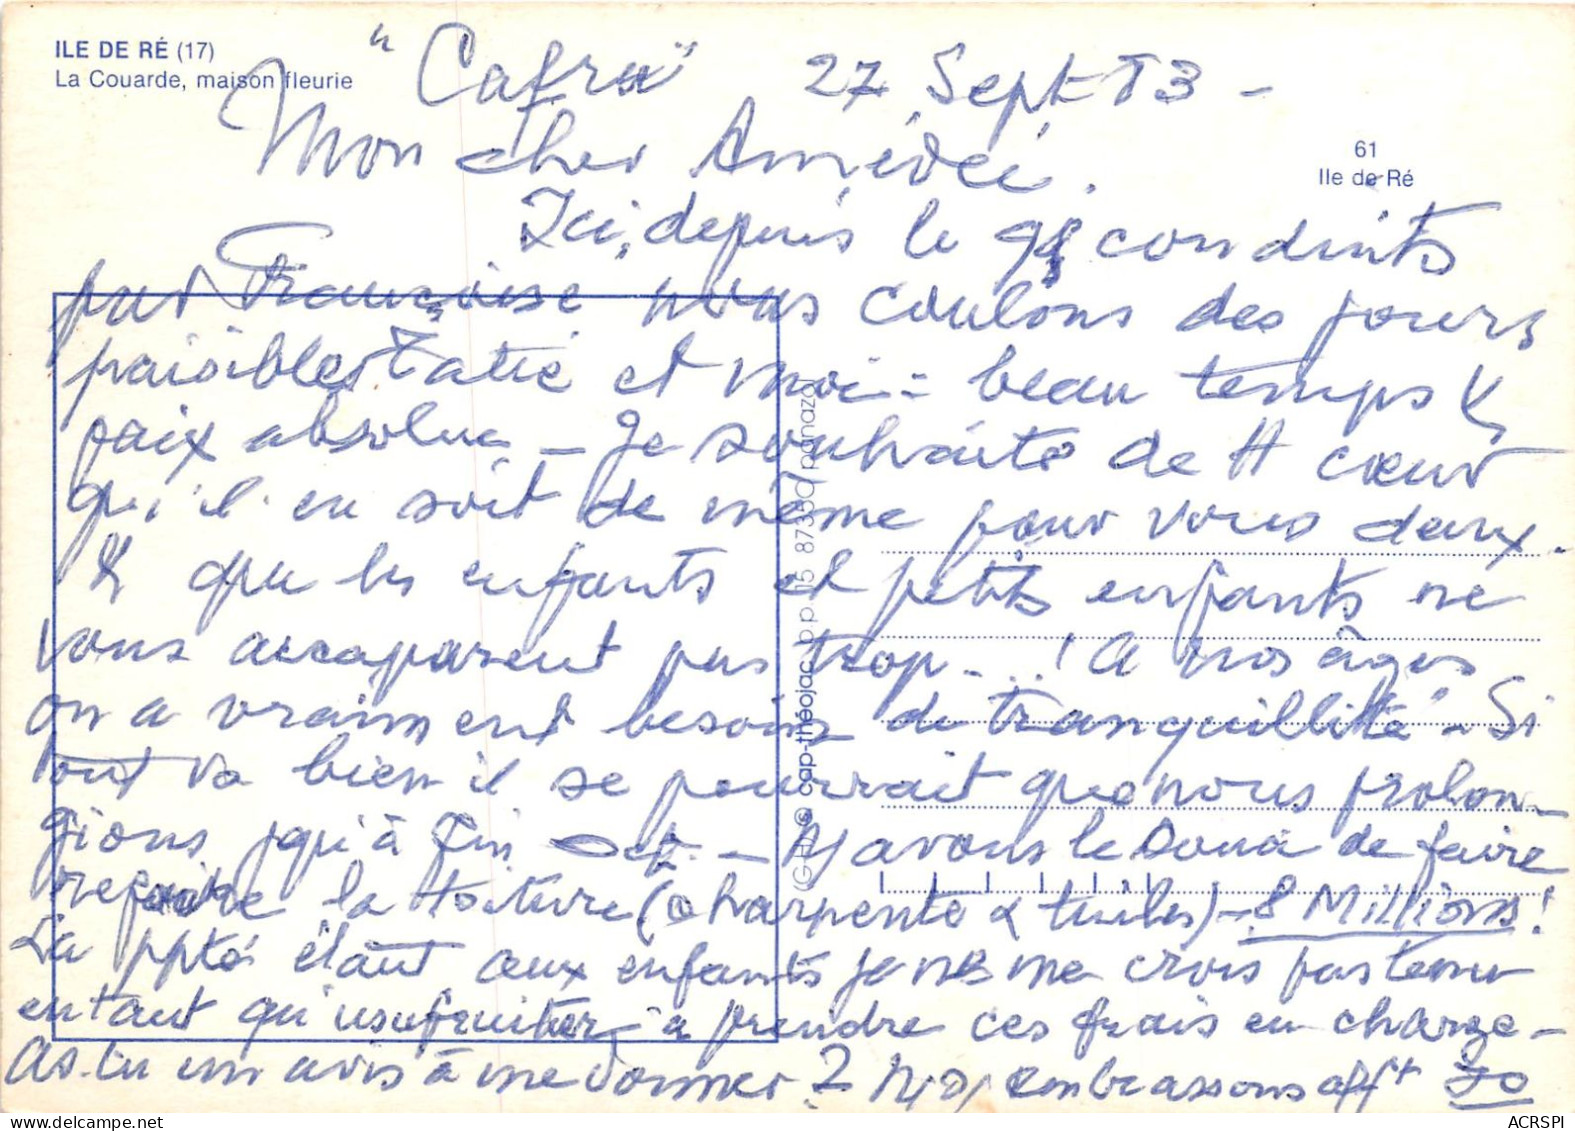 ILE DE RÉ (17)
La Couarde, maison fleurie
"Cafra" 27 Sept 83 -
61
Ile de Ré
Mon cher Amédée.
Ici, depuis le 9, conduits
par Françoise nous coulons des jours
paisibles Tatie et moi = beau temps &
paix absolue - Je souhaite de tt cœur
qu'il en soit de même pour vous deux.
& que les enfants et petits enfants ne
vous accaparent pas trop...! A nos âges
on a vraiment besoin de tranquillité - Si
tout va bien il se pourrait que nous prolon-
gions jqu'à fin Oct. - Ns avons le Souci de faire
refaire la toiture (charpente & tuiles) - 8 Millions!
La ppté étant aux enfants je ne me crois pas tenu
en tant qu'usufruitier à prendre ces frais en charge -
As-tu un avis à me donner? Ns embrassons afft
(G-H) © cap-théojac b.p. 15 87350 panazol
ACRSPI